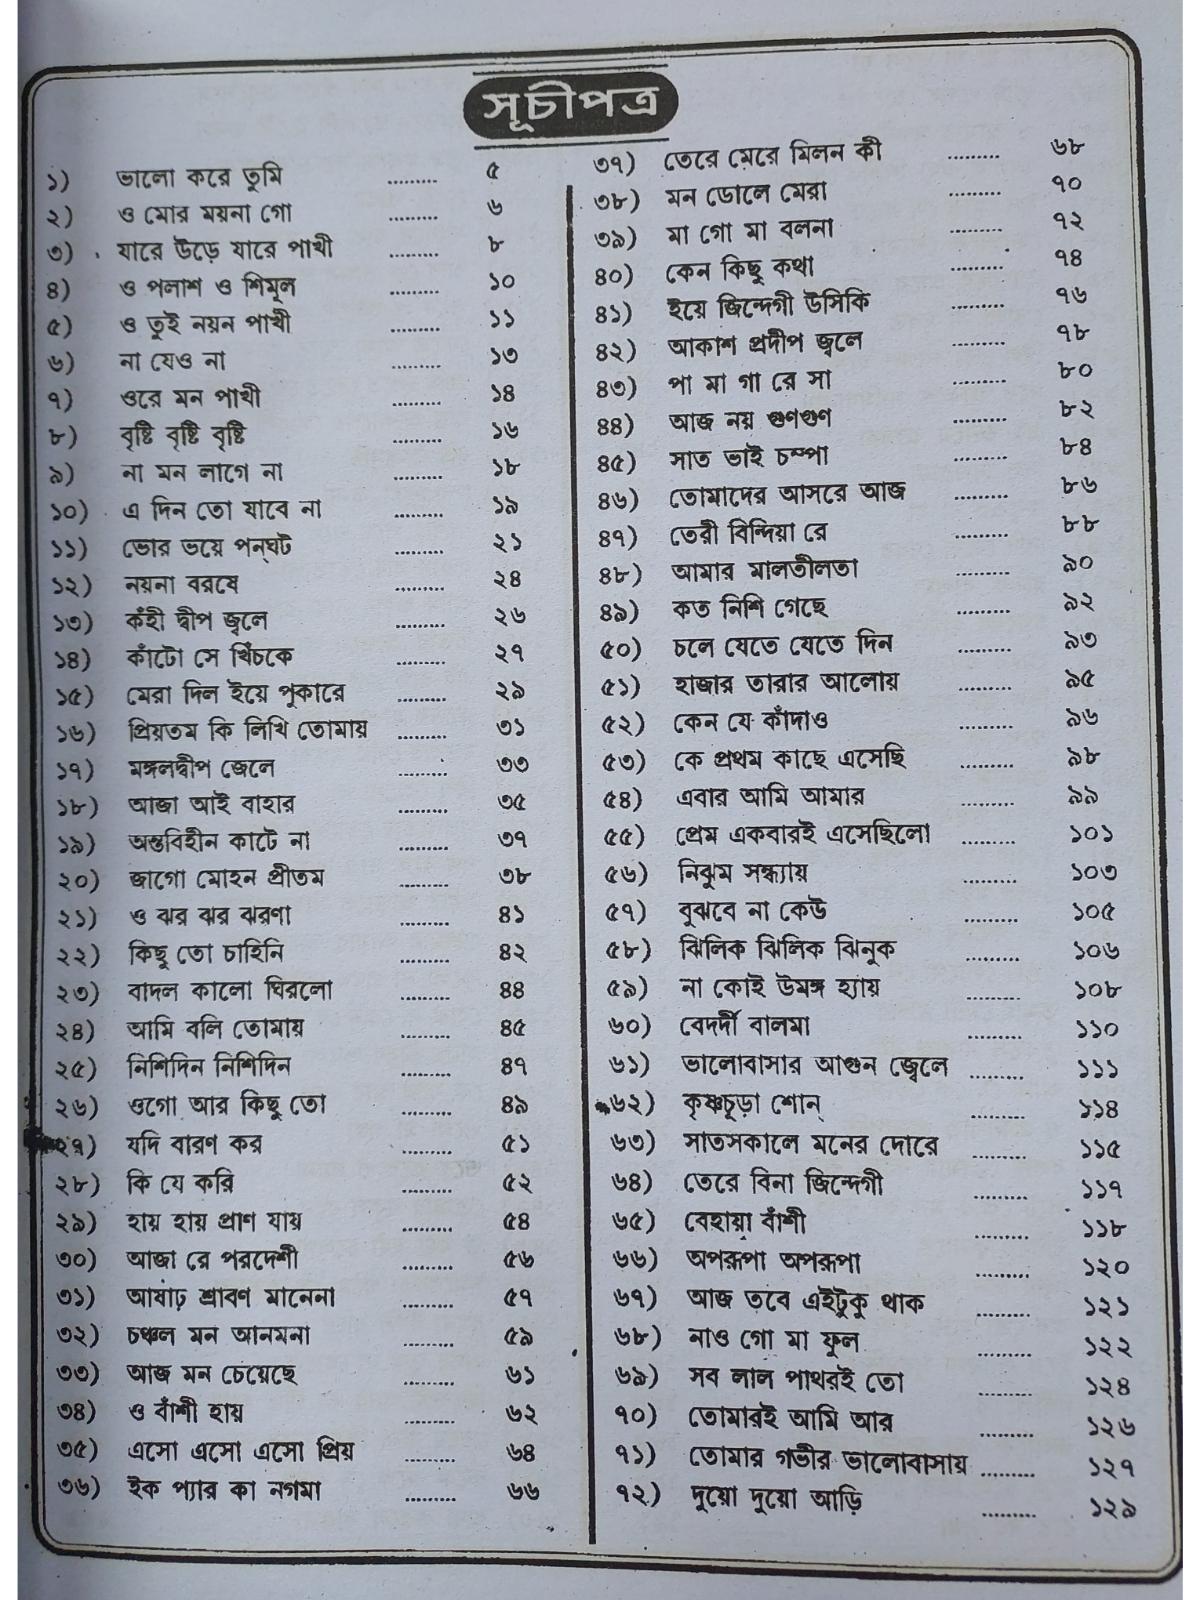 সূচীপত্র
১) ভালো করে তুমি ......... ৫
২) ও মোর ময়না গো ......... ৬
৩) যারে উড়ে যারে পাখী ......... ৮
৪) ও পলাশ ও শিমূল ......... ১০
৫) ও তুই নয়ন পাখী ......... ১১
৬) না যেও না ......... ১৩
৭) ওরে মন পাখী ......... ১৪
৮) বৃষ্টি বৃষ্টি বৃষ্টি ......... ১৬
৯) না মন লাগে না ......... ১৮
১০) এ দিন তো যাবে না ......... ১৯
১১) ভোর ভয়ে পন্‌ঘট ......... ২১
১২) নয়না বরষে ......... ২৪
১৩) কঁহী দ্বীপ জ্বলে ......... ২৬
১৪) কাঁটো সে খিঁচকে ......... ২৭
১৫) মেরা দিল ইয়ে পুকারে ......... ২৯
১৬) প্রিয়তম কি লিখি তোমায় ......... ৩১
১৭) মঙ্গলদ্বীপ জ্বেলে ......... ৩৩
১৮) আজা আই বাহার ......... ৩৫
১৯) অন্তবিহীন কাটে না ......... ৩৭
২০) জাগো মোহন প্রীতম ......... ৩৮
২১) ও ঝর ঝর ঝরণা ......... ৪১
২২) কিছু তো চাহিনি ......... ৪২
২৩) বাদল কালো ঘিরলো ......... ৪৪
২৪) আমি বলি তোমায় ......... ৪৫
২৫) নিশিদিন নিশিদিন ......... ৪৭
২৬) ওগো আর কিছু তো ......... ৪৯
২৭) যদি বারণ কর ......... ৫১
২৮) কি যে করি ......... ৫২
২৯) হায় হায় প্রাণ যায় ......... ৫৪
৩০) আজা রে পরদেশী ......... ৫৬
৩১) আষাঢ় শ্রাবণ মানেনা ......... ৫৭
৩২) চঞ্চল মন আনমনা ......... ৫৯
৩৩) আজ মন চেয়েছে ......... ৬১
৩৪) ও বাঁশী হায় ......... ৬২
৩৫) এসো এসো এসো প্রিয় ......... ৬৪
৩৬) ইক প্যার কা নগমা ......... ৬৬
৩৭) তেরে মেরে মিলন কী ......... ৬৮
৩৮) মন ডোলে মেরা ......... ৭০
৩৯) মা গো মা বলনা ......... ৭২
৪০) কেন কিছু কথা ......... ৭৪
৪১) ইয়ে জিন্দেগী উসিকি ......... ৭৬
৪২) আকাশ প্রদীপ জ্বলে ......... ৭৮
৪৩) পা মা গা রে সা ......... ৮০
৪৪) আজ নয় গুণগুণ ......... ৮২
৪৫) সাত ভাই চম্পা ......... ৮৪
৪৬) তোমাদের আসরে আজ ......... ৮৬
৪৭) তেরী বিন্দিয়া রে ......... ৮৮
৪৮) আমার মালতীলতা ......... ৯০
৪৯) কত নিশি গেছে ......... ৯২
৫০) চলে যেতে যেতে দিন ......... ৯৩
৫১) হাজার তারার আলোয় ......... ৯৫
৫২) কেন যে কাঁদাও ......... ৯৬
৫৩) কে প্রথম কাছে এসেছি ......... ৯৮
৫৪) এবার আমি আমার ......... ৯৯
৫৫) প্রেম একবারই এসেছিলো ......... ১০১
৫৬) নিঝুম সন্ধ্যায় ......... ১০৩
৫৭) বুঝবে না কেউ ......... ১০৫
৫৮) ঝিলিক ঝিলিক ঝিনুক ......... ১০৬
৫৯) না কোই উমঙ্গ হ্যায় ......... ১০৮
৬০) বেদর্দী বালমা ......... ১১০
৬১) ভালোবাসার আগুন জ্বেলে ......... ১১১
৬২) কৃষ্ণচূড়া শোন্ ......... ১১৪
৬৩) সাতসকালে মনের দোরে ......... ১১৫
৬৪) তেরে বিনা জিন্দেগী ......... ১১৭
৬৫) বেহায়া বাঁশী ......... ১১৮
৬৬) অপরূপা অপরূপা ......... ১২০
৬৭) আজ তবে এইটুকু থাক ......... ১২১
৬৮) নাও গো মা ফুল ......... ১২২
৬৯) সব লাল পাথরই তো ......... ১২৪
৭০) তোমারই আমি আর ......... ১২৬
৭১) তোমার গভীর ভালোবাসায় ......... ১২৭
৭২) দুয়ো দুয়ো আড়ি ......... ১২৯